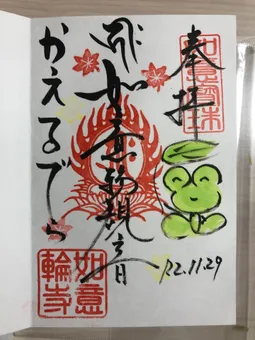 奉拝
如意輪観音
かえるでら
如意輪寺
R2.11.29